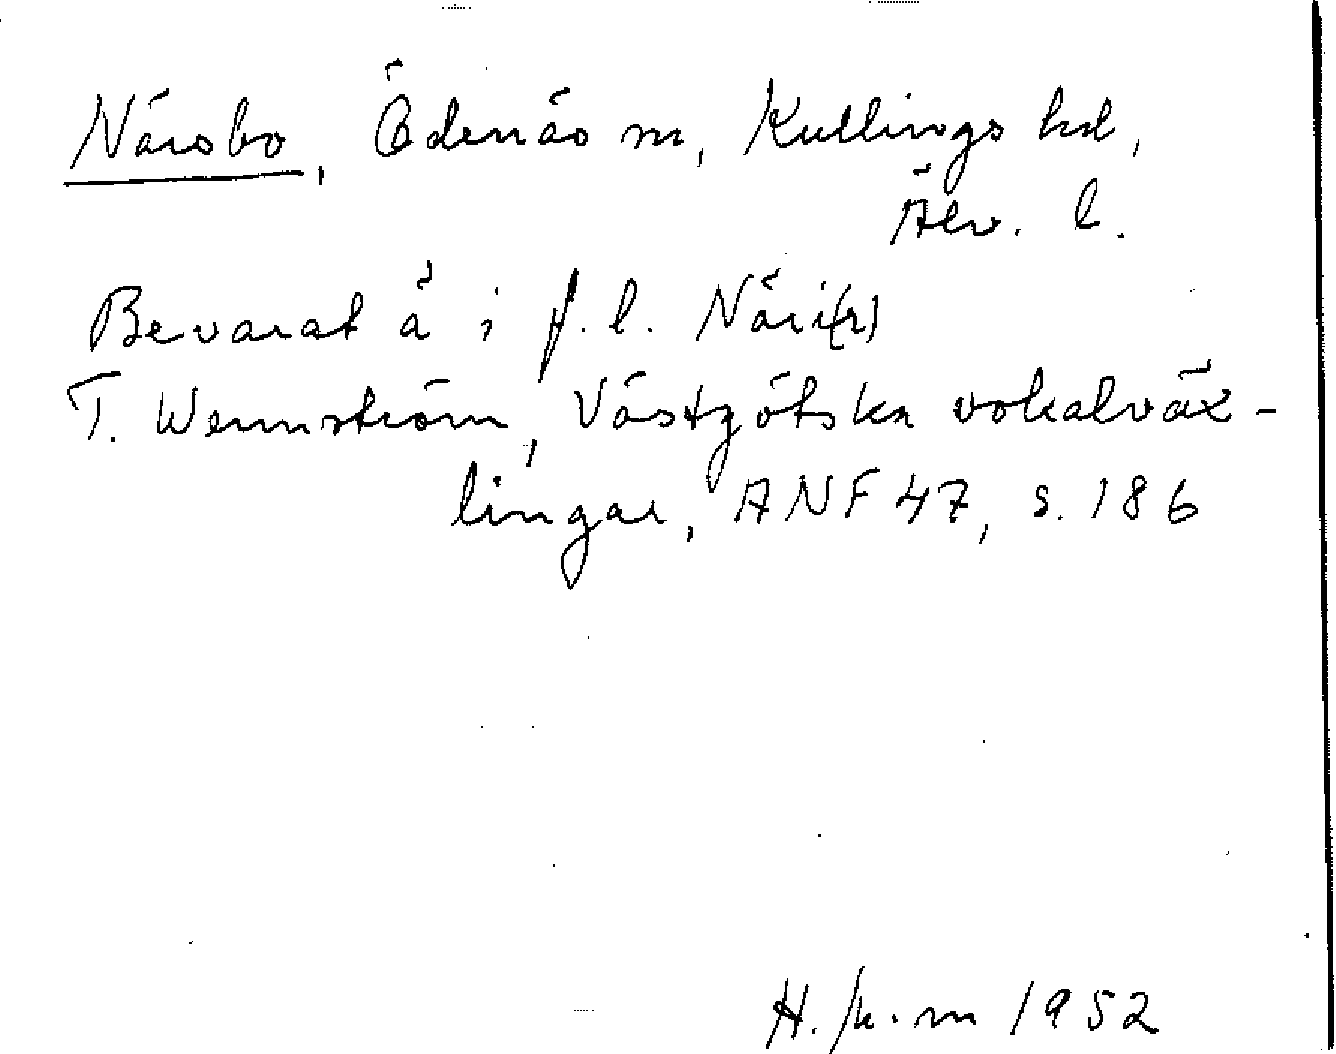 Närsbo, Ödenäs sn, Kullings hd,
Älv. l.
Bevarat ä i f.l. Näri(r)
T. Wennström, Västgötska vokalväx-
lingar, ANF 47, s. 186
H. 1952